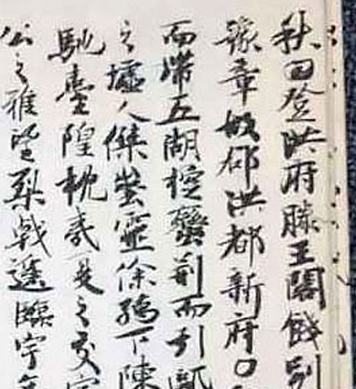 秋日登洪府滕王閣餞別
豫章故郡洪都新府〇
而带五湖控蠻荆而引甌
之墟人傑㙯靈徐孺下陳
馳臺隍枕夷夏之交賓
公之雅望棨戟遥臨宇